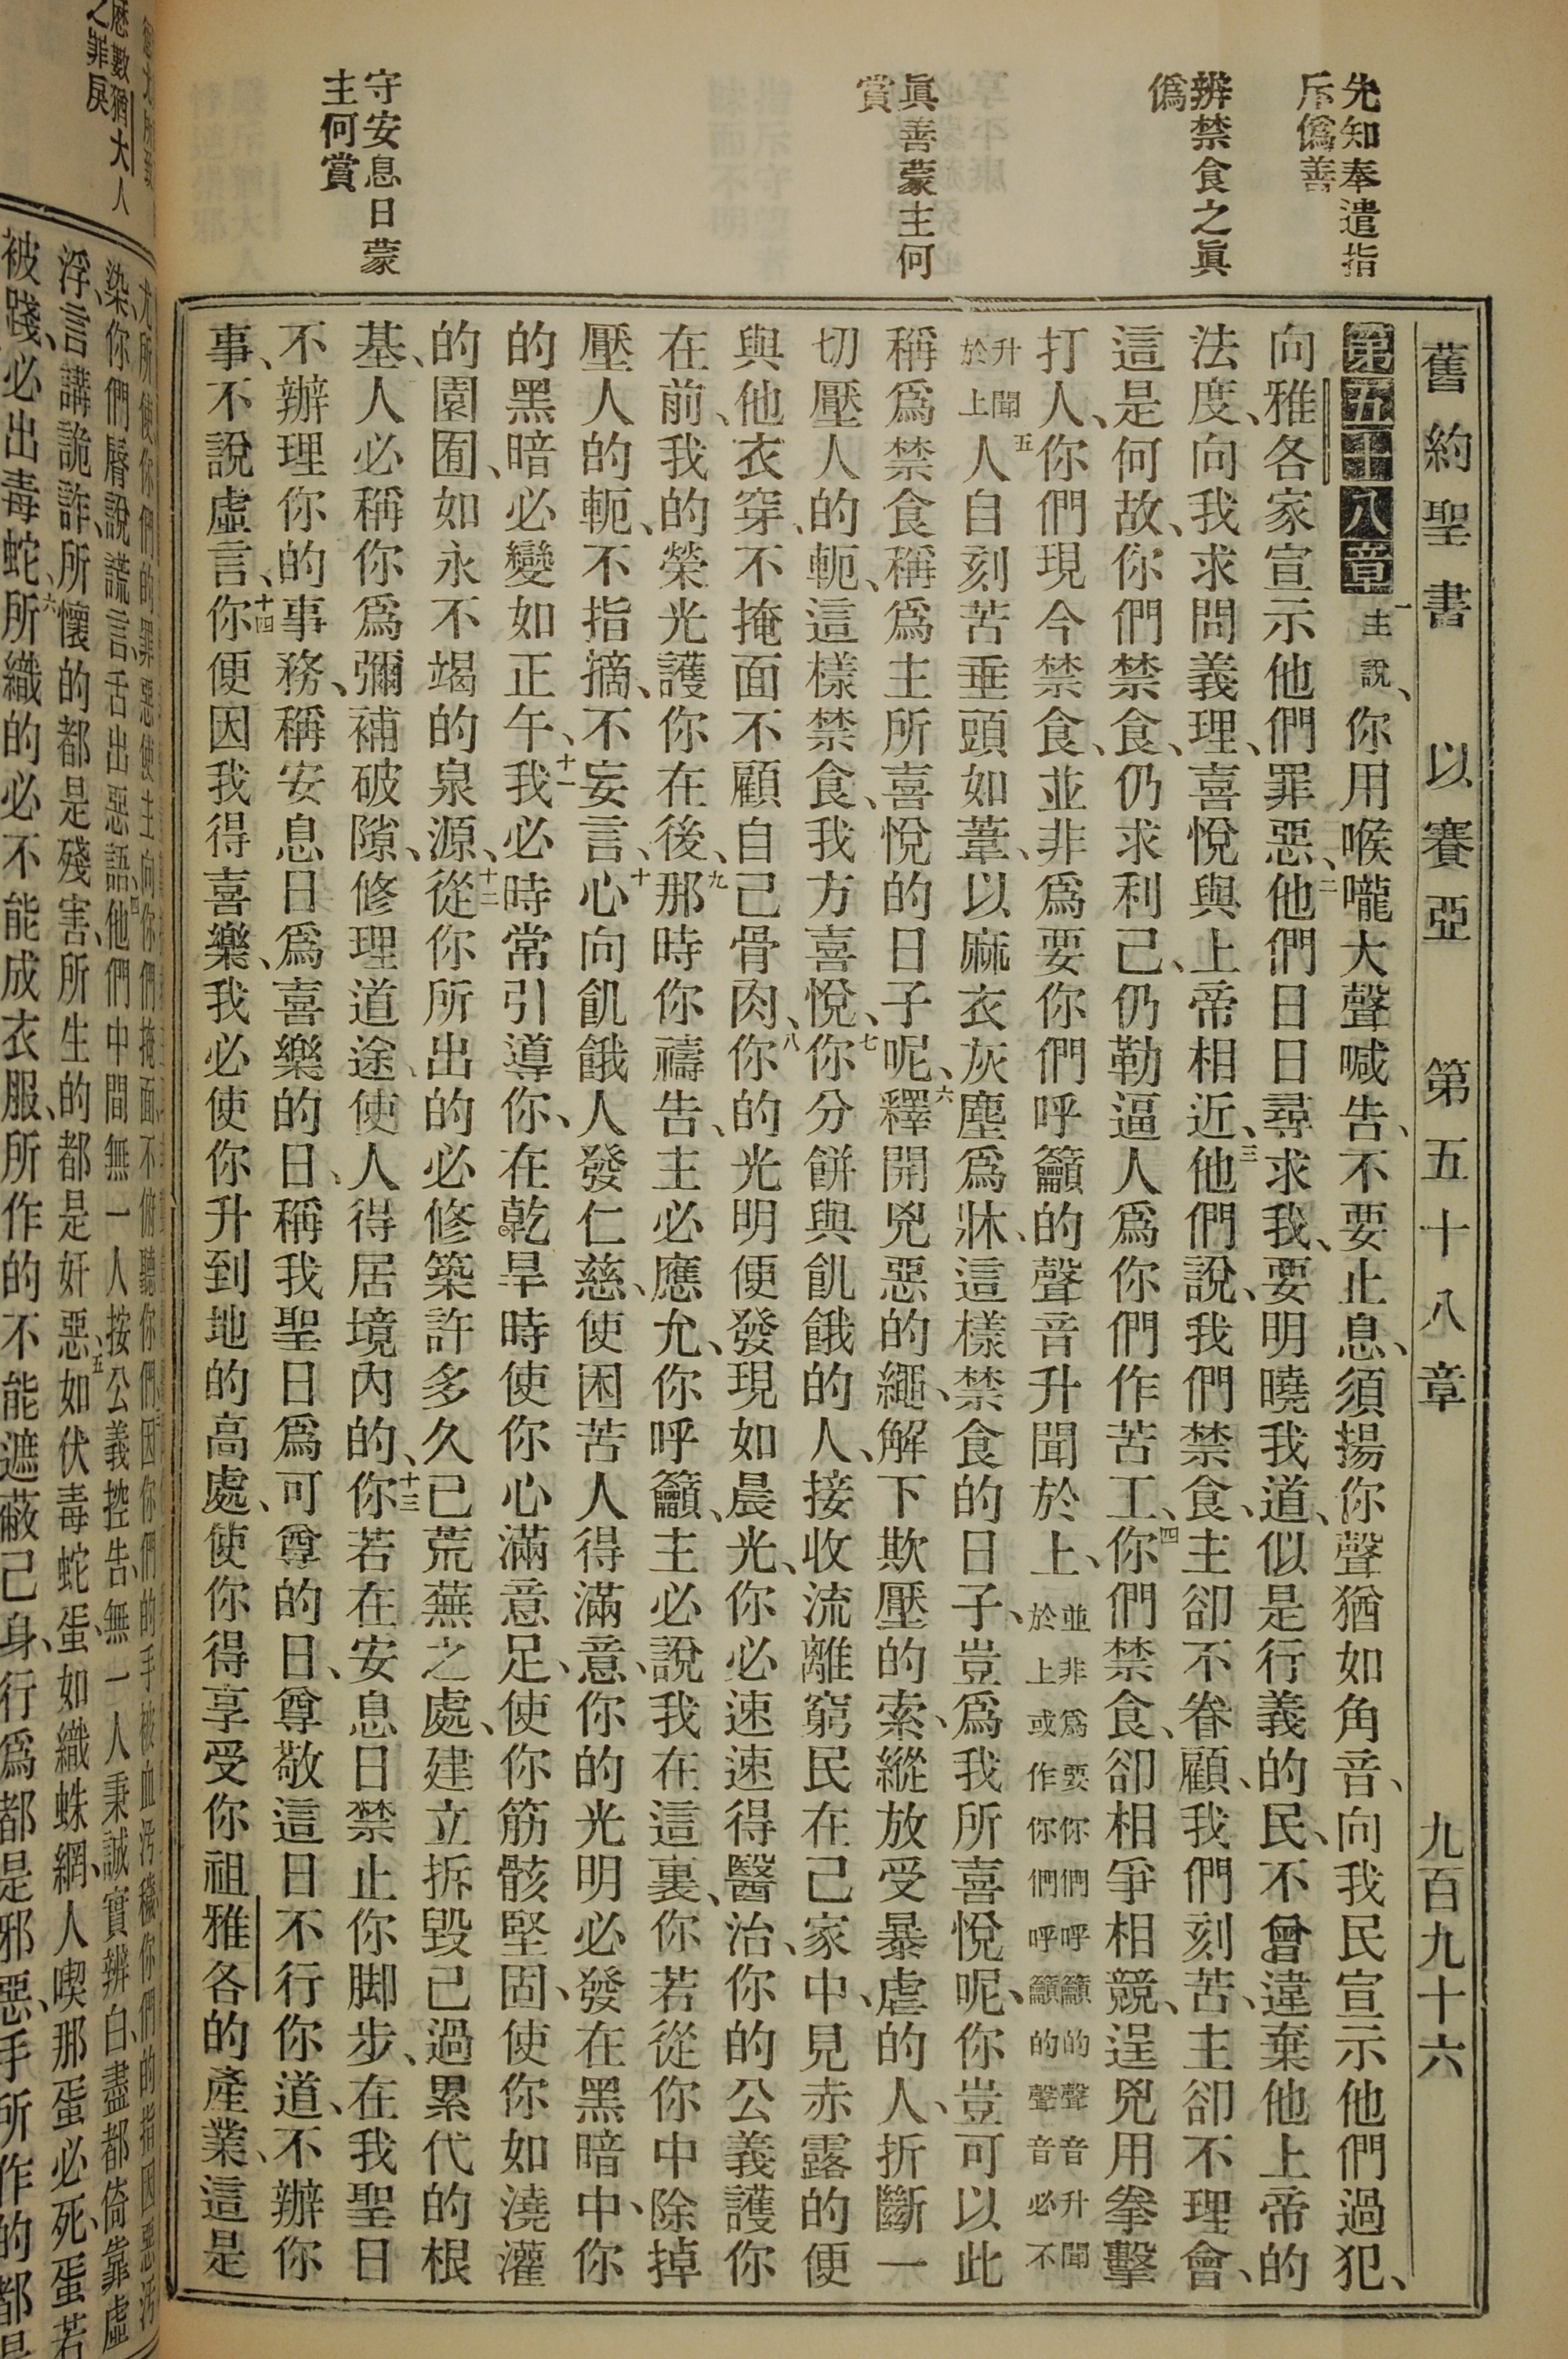 舊約聖書 以賽亞 第五十八章 九百九十六
先知奉遣指
斥僞善
辨禁食之眞
僞
眞善蒙主何
賞
守安息日蒙
主何賞
第五十八章一主說、你用喉嚨大聲喊告、不要止息、須揚你聲猶如角音、向我民宣示他們過犯、
向雅各家宣示他們罪惡、二他們日日尋求我、要明曉我道、似是行義的民、不曾違棄他上帝的
法度、向我求問義理、喜悅與上帝相近、三他們說、我們禁食、主卻不眷顧、我們刻苦、主卻不理會、
這是何故、你們禁食、仍求利己、仍勒逼人爲你們作苦工、四你們禁食、卻相爭相競、逞兇用拳擊
打人、你們現今禁食、並非爲要你們呼籲的聲音升聞於上、並非爲要你們呼籲的聲音升聞於上或作你們呼籲的聲音必不
升聞於上五人自刻苦垂頭如葦、以麻衣灰塵爲牀、這樣禁食的日子、豈爲我所喜悅呢、你豈可以此
稱爲禁食、稱爲主所喜悅的日子呢、六釋開兇惡的繩、解下欺壓的索、縱放受暴虐的人、折斷一
切壓人的軛、這樣禁食、我方喜悅、七你分餅與飢餓的人、接收流離窮民在己家中、見赤露的便
與他衣穿、不掩面不顧自己骨肉、八你的光明便發現如晨光、你必速速得醫治、你的公義護你
在前、我的榮光護你在後、九那時你禱告、主必應允、你呼籲、主必說我在這裏、你若從你中除掉
壓人的軛、不指摘、不妄言、十心向飢餓人發仁慈、使困苦人得滿意、你的光明必發在黑暗中、你
的黑暗必變如正午、十一我必時常引導你、在乾旱時使你心滿意足、使你筋骸堅固、使你如澆灌
的園囿、如永不竭的泉源、十二從你所出的必修築許多久已荒蕪之處、建立拆毀已過累代的根
基、人必稱你爲彌補破隙、修理道途、使人得居境內的、十三你若在安息日禁止你脚步、在我聖日
不辦理你的事務、稱安息日爲喜樂的日、稱我聖日爲可尊的日、尊敬這日、不行你道、不辦你
事、不說虛言、十四你便因我得喜樂、我必使你升到地的高處、使你得享受你祖雅各的產業、這是
歷數猶大人
之罪戾
染、你們脣說謊言、舌出惡語、四他們中間無一人按公義控告、無一人秉誠實辨白、盡都倚靠虛
浮言講詭詐、所懷的都是殘害、所生的都是奸惡、五如伏毒蛇蛋、如織蛛網、人喫那蛋必死、蛋若
被踐、必出毒蛇、六所織的必不能成衣服、所作的不能遮蔽己身、行爲都是邪惡、手所作的都是